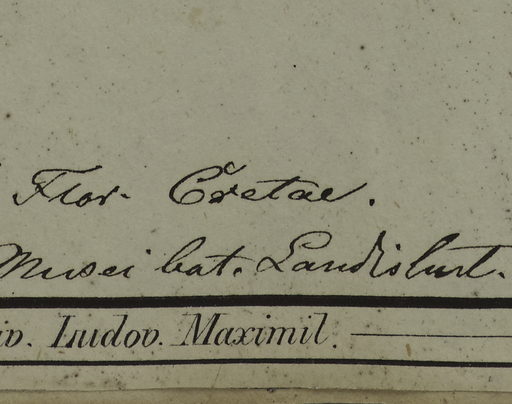 Flor. Cretae.
Musei bat. Landishut.
iv. Ludov. Maximil.